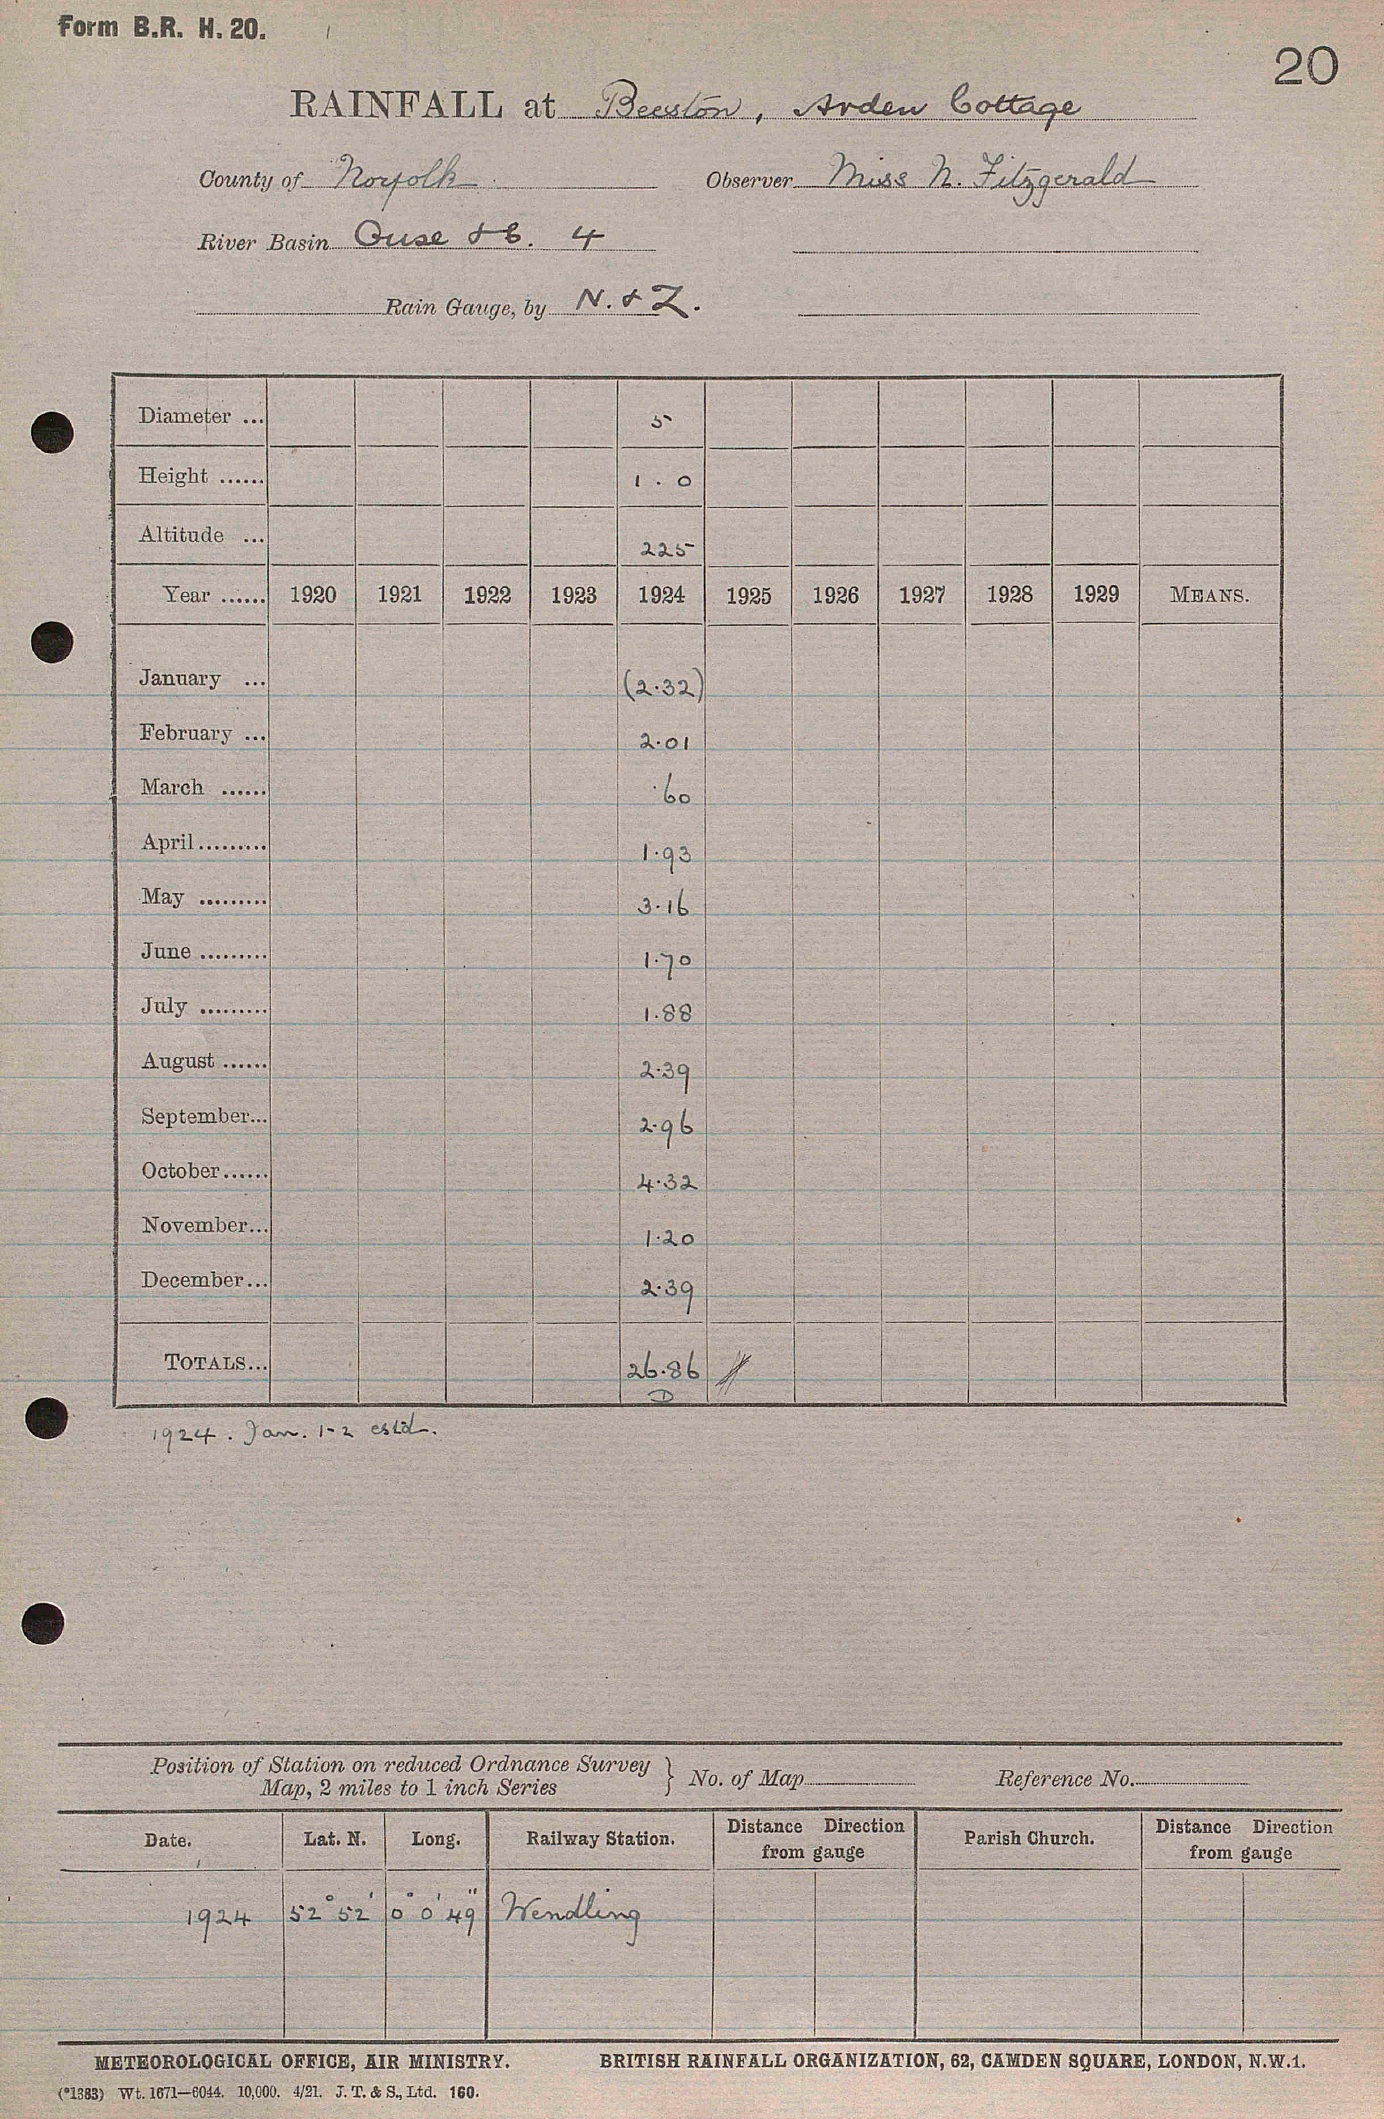 Form B.R. H. 20.
20
RAINFALL at Beeston, Arden Cottage
County of Norfolk Observer Miss N. Fitzgerald
River Basin Ouse & 4
Rain Gauge, by N. & Z.
Diameter ... 5
Height ...... 1.0
Altitude ... 225
Year ...... 1920 1921 1922 1923 1924 1925 1926 1927 1928 1929 MEANS.
January ... (2.32)
February ... 2.01
March ...... .60
April ......... 1.93
May ......... 3.16
June ......... 1.70
July ......... 1.88
August ...... 2.39
September... 2.96
October ...... 4.32
November... 1.20
December... 2.39
TOTALS... 26.86
D
1924. Jan. 1-2 estd.
Position of Station on reduced Ordnance Survey
Map, 2 miles to 1 inch Series } No. of Map Reference No.
Date. Lat. N. Long. Railway Station. Distance Direction from gauge Parish Church. Distance Direction from gauge
1924 52° 52' 0° 0' 49" Wendling
METEOROLOGICAL OFFICE, AIR MINISTRY. BRITISH RAINFALL ORGANIZATION, 62, CAMDEN SQUARE, LONDON, N.W.1.
(*1383) Wt. 1671—6044. 10,000. 4/21. J. T. & S., Ltd. 160.